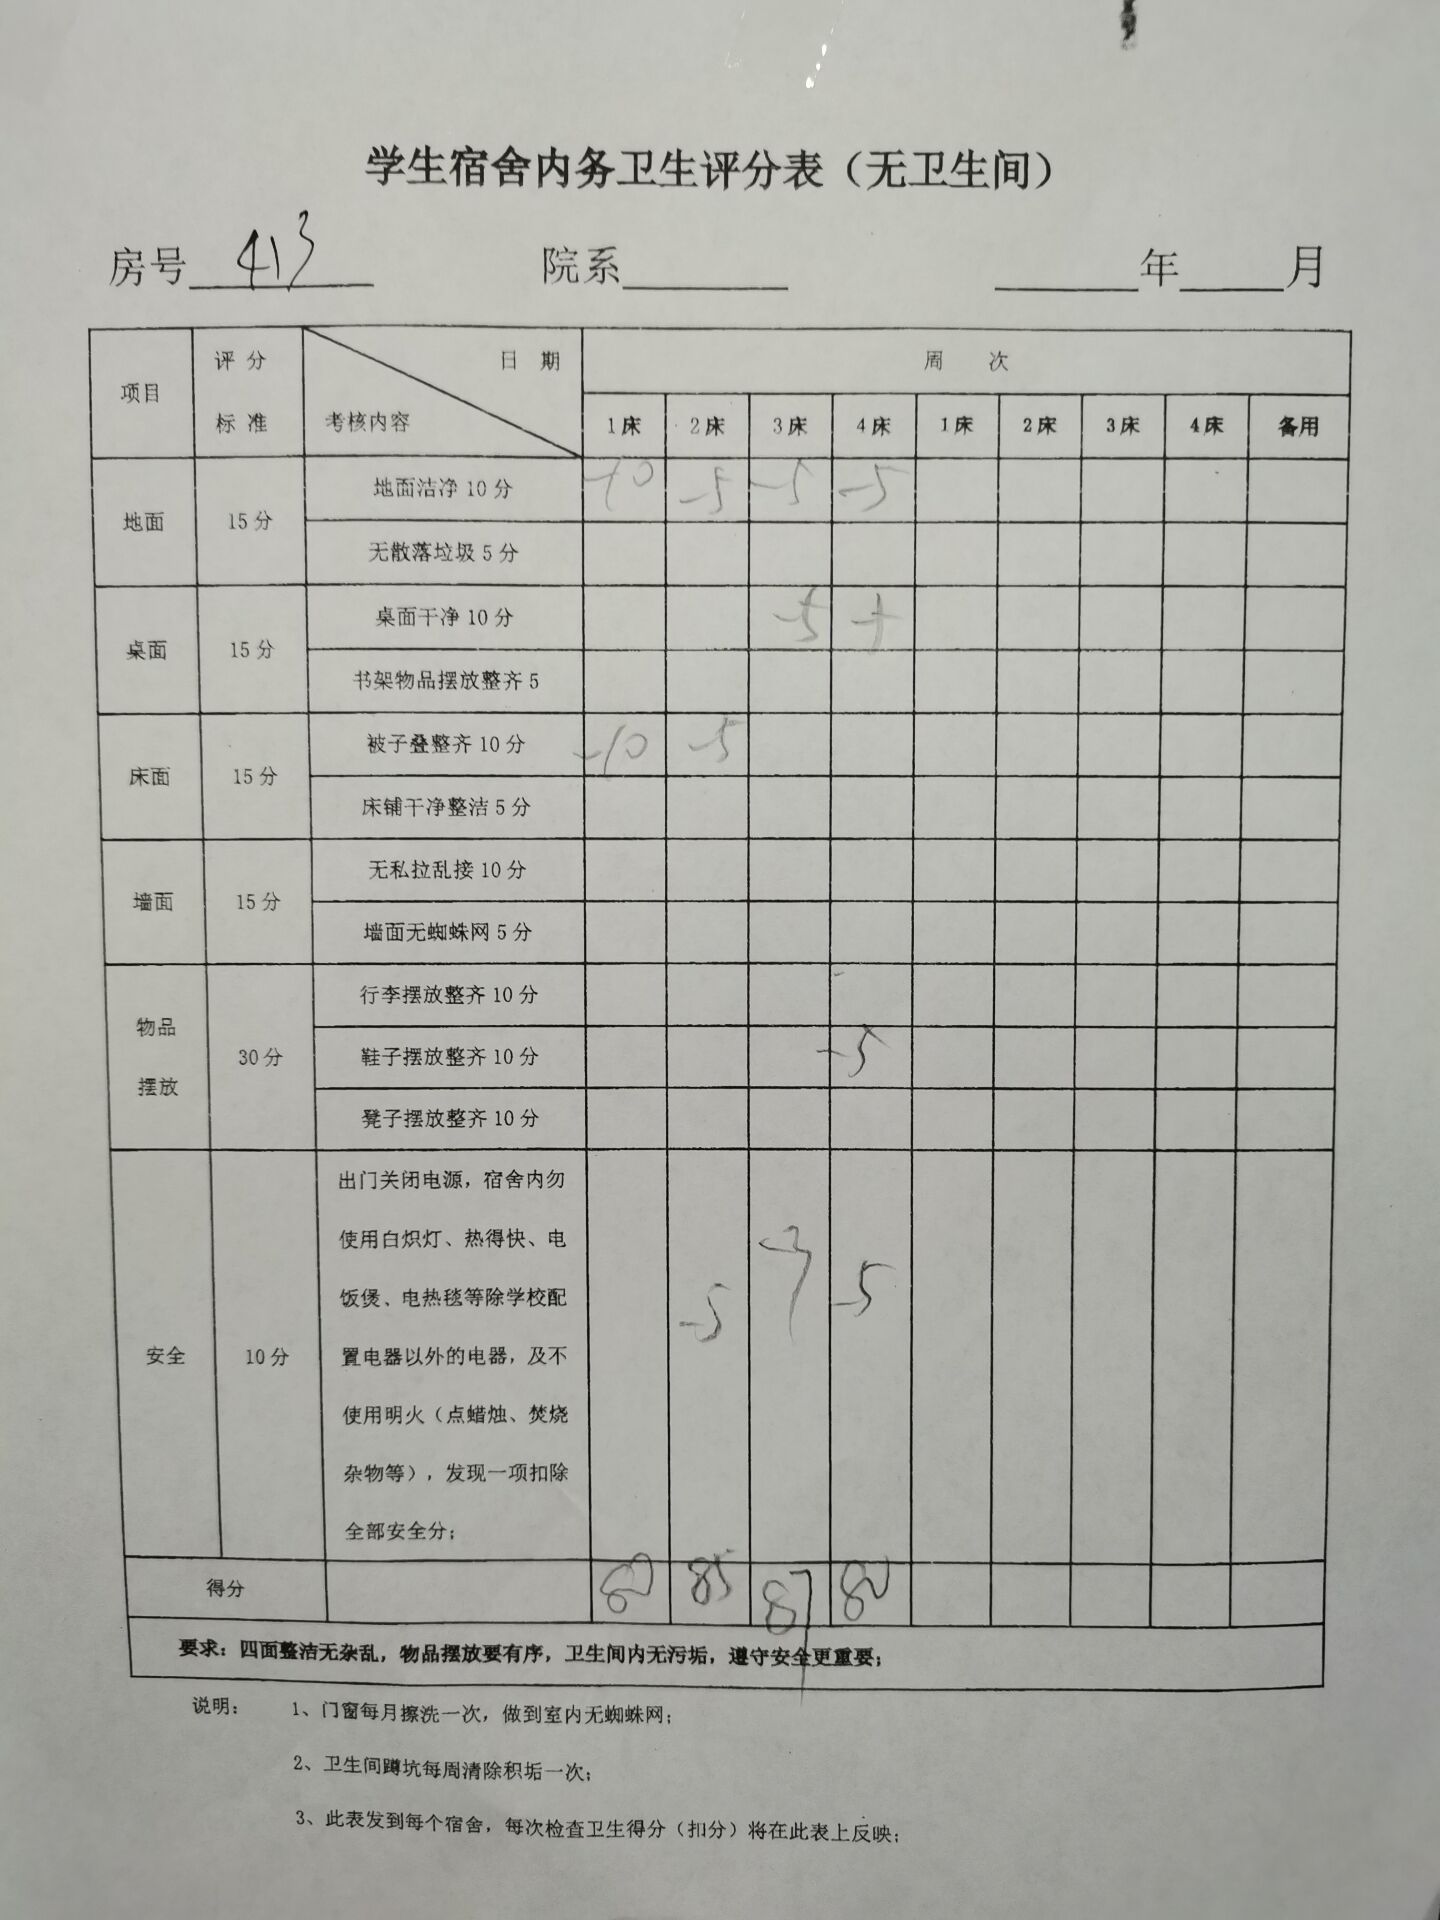 学生宿舍内务卫生评分表（无卫生间）
房号 413 院系 年 月
项目 评分标准 日期 考核内容 周次
1床 2床 3床 4床 1床 2床 3床 4床 备用
地面 15分 地面洁净10分 -10 -5 -5 -5
无散落垃圾5分
桌面 15分 桌面干净10分 -5
书架物品摆放整齐5
床面 15分 被子叠整齐10分 -10 -5
床铺干净整洁5分
墙面 15分 无私拉乱接10分
墙面无蜘蛛网5分
物品摆放 30分 行李摆放整齐10分
鞋子摆放整齐10分 -5
凳子摆放整齐10分
安全 10分 出门关闭电源，宿舍内勿
使用白炽灯、热得快、电
饭煲、电热毯等除学校配
置电器以外的电器，及不
使用明火（点蜡烛、焚烧
杂物等），发现一项扣除
全部安全分；
-5 -3 -5
得分 80 85 87 80
要求：四面整洁无杂乱，物品摆放要有序，卫生间内无污垢，遵守安全更重要；
说明： 1、门窗每月擦洗一次，做到室内无蜘蛛网；
2、卫生间蹲坑每周清除积垢一次；
3、此表发到每个宿舍，每次检查卫生得分（扣分）将在此表上反映；